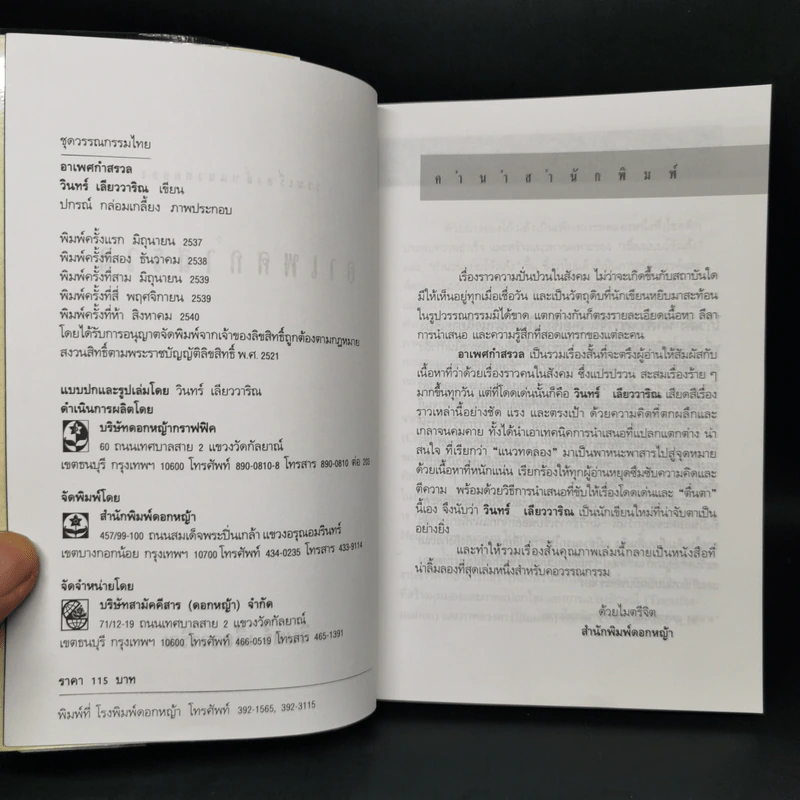 ชุดวรรณกรรมไทย
อาเพศกำสรวล
วินทร์ เลียววาริณ เขียน
ปกรณ์ กล่อมเกลี้ยง ภาพประกอบ
พิมพ์ครั้งแรก มิถุนายน 2537
พิมพ์ครั้งที่สอง ธันวาคม 2538
พิมพ์ครั้งที่สาม มิถุนายน 2539
พิมพ์ครั้งที่สี่ พฤศจิกายน 2539
พิมพ์ครั้งที่ห้า สิงหาคม 2540
โดยได้รับการอนุญาตจัดพิมพ์จากเจ้าของลิขสิทธิ์ถูกต้องตามกฎหมาย
สงวนสิทธิ์ตามพระราชบัญญัติลิขสิทธิ์ พ.ศ. 2521
แบบปกและรูปเล่มโดย วินทร์ เลียววาริณ
ดำเนินการผลิตโดย
บริษัทดอกหญ้ากราฟฟิค
60 ถนนเทศบาลสาย 2 แขวงวัดกัลยาณ์
เขตธนบุรี กรุงเทพฯ 10600 โทรศัพท์ 890-0810-8 โทรสาร 890-0810 ต่อ 203
จัดพิมพ์โดย
สำนักพิมพ์ดอกหญ้า
457/99-100 ถนนสมเด็จพระปิ่นเกล้า แขวงอรุณอมรินทร์
เขตบางกอกน้อย กรุงเทพฯ 10700 โทรศัพท์ 434-0235 โทรสาร 433-9114
จัดจำหน่ายโดย
บริษัทสามัคคีสาร (ดอกหญ้า) จำกัด
71/12-19 ถนนเทศบาลสาย 2 แขวงวัดกัลยาณ์
เขตธนบุรี กรุงเทพฯ 10600 โทรศัพท์ 466-0519 โทรสาร 465-1391
ราคา 115 บาท
พิมพ์ที่ โรงพิมพ์ดอกหญ้า โทรศัพท์ 392-1565, 392-3115
คำนำสำนักพิมพ์
เรื่องราวความปั่นป่วนในสังคม ไม่ว่าจะเกิดขึ้นกับสถาบันใด
มีให้เห็นอยู่ทุกเมื่อเชื่อวัน และเป็นวัตถุดิบที่นักเขียนหยิบมาสะท้อน
ในรูปวรรณกรรมมิได้ขาด แตกต่างกันก็ตรงรายละเอียดเนื้อหา ลีลา
การนำเสนอ และความรู้สึกที่สอดแทรกของแต่ละคน
อาเพศกำสรวล เป็นรวมเรื่องสั้นที่จะตรึงผู้อ่านให้สัมผัสกับ
เนื้อหาที่ว่าด้วยเรื่องราวคนในสังคม ซึ่งแปรปรวน สะสมเรื่องร้าย ๆ
มากขึ้นทุกวัน แต่ที่โดดเด่นนั้นก็คือ วินทร์ เลียววาริณ เสียดสีเรื่อง
ราวเหล่านี้อย่างชัด แรง และตรงเป้า ด้วยความคิดที่ตกผลึกและ
เกลาจนคมคาย ทั้งได้นำเอาเทคนิคการนำเสนอที่แปลกแตกต่าง น่า
สนใจ ที่เรียกว่า "แนวทดลอง" มาเป็นพาหนะพาสารไปสู่จุดหมาย
ด้วยเนื้อหาที่หนักแน่น เรียกร้องให้ทุกผู้อ่านหยุดซึมซับความคิดและ
ตีความ พร้อมด้วยวิธีการนำเสนอที่ขับให้เรื่องโดดเด่นและ "ตื่นตา"
นี้เอง จึงนับว่า วินทร์ เลียววาริณ เป็นนักเขียนใหม่ที่น่าจับตาเป็น
อย่างยิ่ง
และทำให้รวมเรื่องสั้นคุณภาพเล่มนี้กลายเป็นหนังสือที่
น่าลิ้มลองที่สุดเล่มหนึ่งสำหรับคอวรรณกรรม
ด้วยไมตรีจิต
สำนักพิมพ์ดอกหญ้า